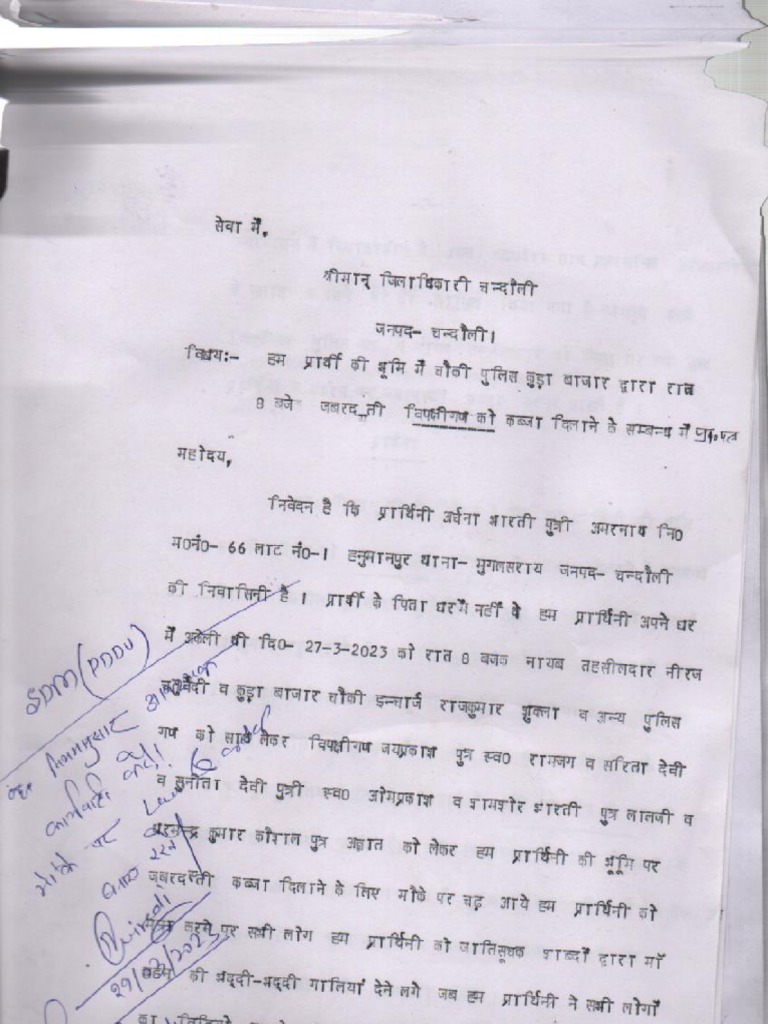 सेवा में,
श्रीमान् जिलाधिकारी चन्दौली
जनपद- चन्दौली।
विषय:- हम प्रार्थी की भूमि में चौकी पुलिस कुड़ा बाजार द्वारा रात
8 बजे जबरद_ती विपक्षीगण को कब्जा दिलाने के सम्बन्ध में
महोदय,
निवेदन है कि प्रार्थिनी अर्चना भारती पुत्री अमरनाथ नि0
म0नं0- 66 लाट नं0-1 हनुमानपुर थाना- मुगलसराय जनपद- चन्दौली
की निवासिनी है । प्रार्थी के पिता घरमें नहीं थे हम प्रार्थिनी अपने घर
में अकेली थी दि0- 27-3-2023 को रात 8 बजक नायब तहसीलदार नीरज
चतुर्वेदी व कुड़ा बाजार चौकी इन्चार्ज राजकुमार शुक्ला व अन्य पुलिस
गण को साथ लेकर विपक्षीगण जयप्रकाश पुत्र स्व0 रामजग व सरिता देवी
व सुनीता देवी पुत्री स्व0 ओमप्रकाश व शमशेर भारती पुत्र लालजी व
धरमेन्द्र कुमार कौशल पुत्र अज्ञात को लेकर हम प्रार्थिनी की भूमि पर
जबरदस्ती कब्जा दिलाने के लिए मौके पर चढ़ आये हम प्रार्थिनी को
मना करने पर सभी लोग हम प्रार्थिनी को जातिसूचक शब्दों द्वारा माँ
बहन की भद्दी-भद्दी गालियां देने लगे जब हम प्रार्थिनी ने सभी लोगों
का
SDM (PDDU)
नियमानुसार आवश्यक
कार्यवाही करें।
मौके पर Law &
बनाए रखें